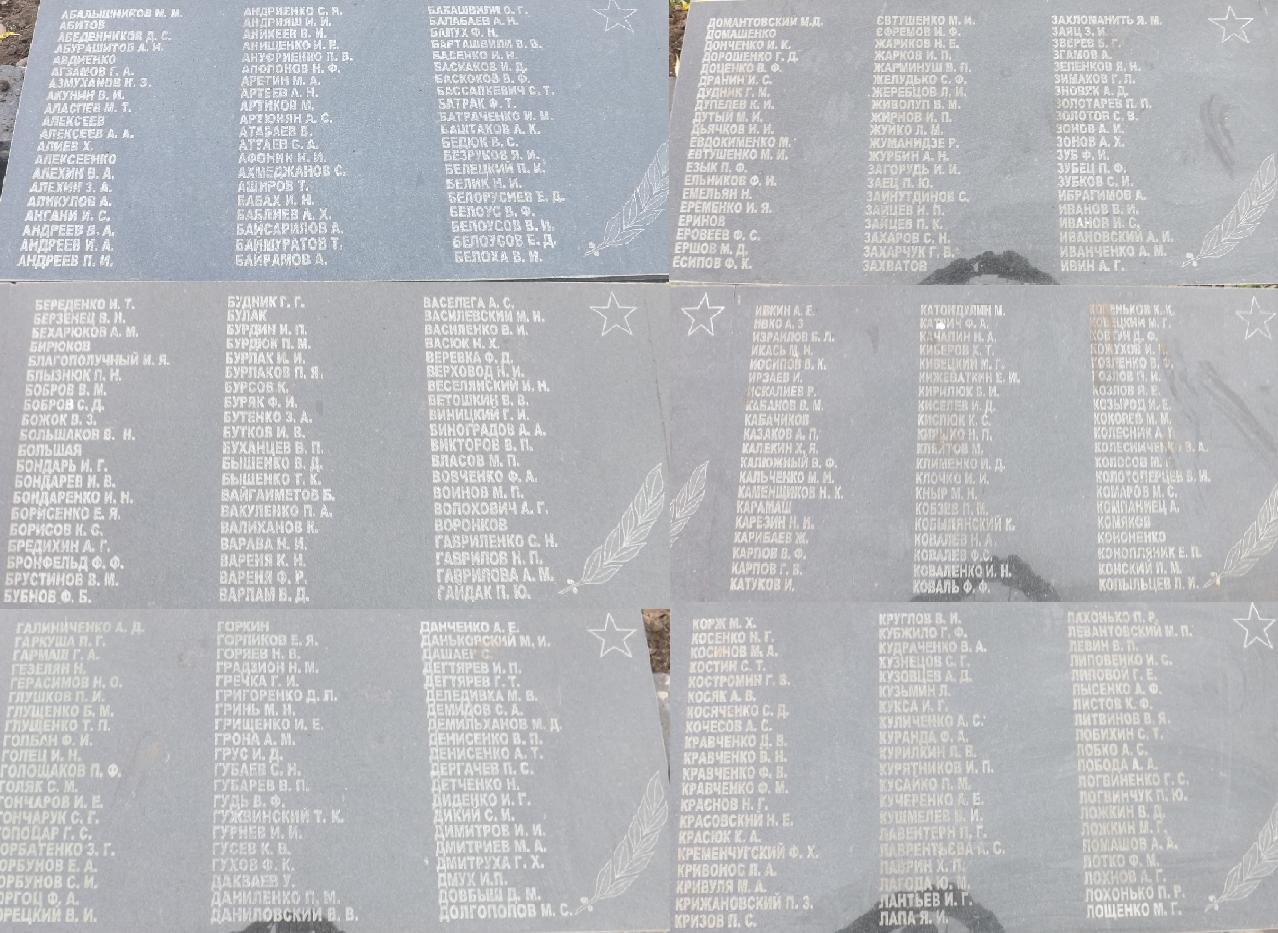 АБАЛЫШНИКОВ М. М.
АБИТОВ
АБЕДЕННИКОВ Д. С.
АБУРАШИТОВ А. И.
АВДИЕНКО
АГЗАМОВ Г. А.
АЗМУХАНОВ Н. З.
АКУНИН В. И.
АЛАСПЕВ М. Т.
АЛЕКСЕЕВ
АЛЕКСЕЕВ А. А.
АЛИЕВ Х.
АЛЕКСЕЕНКО
АЛЕХИН В. А.
АЛЕХИН З. А.
АЛИКУЛОВ А.
АНГАНИ И. С.
АНДРЕЕВ В. А.
АНДРЕЕВ И. А.
АНДРЕЕВ П. И.
АНДРИЕНКО С. Я.
АНДРИЯШ И. И.
АНИКЕЕВ В. И.
АНИЩЕНКО И. Е.
АНУФРИЕНКО П. В.
АПОПОНОВ Н. Ф.
АРЕТИН М. А.
АРТЕЕВ А. Н.
АРТИКОВ М.
АРТЮНЯН А. С.
АТАБАЕВ Б.
АТТАЕВ С. А.
АФОНИН Н. И.
АХМЕДЖАНОВ С.
АШИРОВ Т.
БАБАХ И. Н.
БАБЛИЕВ А. Х.
БАЙСАРИЛОВ А.
БАЙМУРАТОВ Т.
БАЙРАМОВ А.
БАКАШВИЛИ О. Г.
БАЛАБАЕВ А. Н.
БАЛУХ Ф. Н.
БАРТАШВИЛИ В. В.
БАСЕНКО И. Н.
БАСКАКОВ И. Д.
БАСКОКОВ В. Ф.
БАССАЦКЕВИЧ С. Т.
БАТРАК Ф. Т.
БАТРАЧЕНКО И. М.
БАШТАКОВ А. К.
БЕДЮК В. С.
БЕЗРУКОВ Я. И.
БЕЛЕЦКИЙ П. И.
БЕЛИК Н. И.
БЕЛОРУСИЕВ Е. Д.
БЕЛОУС В. Ф.
БЕЛОУСОВ В. И.
БЕЛОУСОВ Е. Д.
БЕЛОХА В. Н.
ДОМАНТОВСКИЙ М.Д.
ДОМАШЕНКО
ДОНЧЕНКО И. К.
ДОРОШЕНКО Г. Д.
ДОЦЕНКО В. Ф.
ДРАНИН И. С.
ДУДНИК Г. М.
ДУПЕЛЕВ К. И.
ДУТЫЙ М. И.
ДЬЯЧКОВ И. Н.
ЕВДОКИМЕНКО М.
ЕВТУШЕНКО М. И.
ЕЗЫК П. Ф.
ЕЛЬНИКОВ Ф. И.
ЕМЕЛЬЯН Н.
ЕРЕМЕНКО И. Я.
ЕРИНОВ
ЕРОВЕЕВ Ф. С.
ЕРШОВ М. Д.
ЕСИПОВ Ф. К.
ЄВТУШЕНКО М. И.
ЄФРЕМОВ И. Ф.
ЖАРИКОВ Н. Е.
ЖАРКОВ И. П.
ЖАРМИНУШ В. П.
ЖЕЛУДЬКО С. Ф.
ЖЕРЕБЦОВ Л. И.
ЖИВОЛУП В. М.
ЖИРНОВ И. П.
ЖУЙКО Л. М.
ЖУМАНИДЗЕ Р.
ЖУРБИН А. Н.
ЗАГОРУДЬ И. И.
ЗАЕЦ П. Ю.
ЗАЙНУТДИНОВ С.
ЗАЙЦЕВ И. П.
ЗАЙЦЕВ П. К.
ЗАХАРОВ С. Н.
ЗАХАРЧУК Г. В.
ЗАХВАТОВ
ЗАХЛОМАНИТЬ Я. М.
ЗАЯЦ З. И.
ЗВЕРЕВ Б. Г.
ЗГАМОВ А.
ЗЕЛЕНКОВ Я. Н.
ЗИМАКОВ Г. Л.
ЗНОВЯК А. Д.
ЗОЛОТАРЕВ П. П.
ЗОЛОТОВ С. В.
ЗОНОВ А. И.
ЗОНОВ А. Х.
ЗУБ Ф. И.
ЗУБЕЦ П. Ф.
ЗУБКОВ С. И.
ИБРАГИМОВ А.
ИВАНОВ В. И.
ИВАНОВ И. С.
ИВАНОВСКИЙ А. И.
ИВАНЧЕНКО А. М.
ИВИН А. Г.
БЕРЕДЕНКО И. Т.
БЕРЗЕНЕЦ В. Н.
БЕХАРЮКОВ А. М.
БИРЮКОВ
БЛАГОПОЛУЧНЫЙ И. Я.
БЛЫЗНЮК П. Н.
БОБРОВ В. М.
БОБРОВ С. Д.
БОЖОК В. З.
БОЛЬШАКОВ В. Н.
БОЛЬШАЯ
БОНДАРЬ И. Г.
БОНДАРЕВ И. В.
БОНДАРЕНКО И. Н.
БОРИСЕНКО Е. Я.
БОРИСОВ К. С.
БРЕДИХИН А. Г.
БРОНФЕЛЬД Ф. Ф.
БРУСТИНОВ В. М.
БУБНОВ Ф. Б.
БУДНИК Г. Г.
БУЛАК
БУРДИН И. П.
БУРДЮК П. М.
БУРЛАК И. И.
БУРЛАКОВ П. Я.
БУРСОВ К.
БУРЯК Ф. И.
БУТЕНКО З. А.
БУТКОВ И. В.
БУХАНЦЕВ В. П.
БЫШЕНКО В. Д.
БЫШЕНКО Т. К.
ВАЙГАИМЕТОВ Б.
ВАКУЛЕНКО П. А.
ВАЛИХАНОВ К.
ВАРАВА Н. И.
ВАРЕНЯ К. Н.
ВАРЕНЯ Ф. Р.
ВАРЛАМ В. Д.
ВАСЕЛЕГА А. С.
ВАСИЛЕВСКИЙ М. Н.
ВАСИЛЕНКО В. И.
ВАСЮК Н. Х.
ВЕРЕВКА Ф. Д.
ВЕРХОВОД Н. И.
ВЕСЕЛЯНСКИЙ И. Н.
ВЕТОШКИН В. В.
ВИНИЦКИЙ Г. И.
ВИНОГРАДОВ А. А.
ВИКТОРОВ В. П.
ВЛАСОВ М. П.
ВОВЧЕНКО Ф. А.
ВОИНОВ М. П.
ВОЛОХОВИЧ А. Г.
ВОРОНКОВ
ГАВРИЛЕНКО С. Н.
ГАВРИЛОВ Н. П.
ГАВРИЛОВА А. М.
ГАЙДАК П. Ю.
ИВКИН А. Е.
ИВКО А. З
ИЗРАИЛОВ Б. Л.
ИКАСЬ М. Н.
ИОСИПОВ В. К.
ИРЗАЕВ И.
ИСКАЛИЕВ Р.
КАБАНОВ В. М.
КАБАЧИКОВ
КАЗАКОВ А. П.
КАЛЕКИН Х. Я.
КАЛЮЖНЫЙ В. Ф.
КАЛЬЧЕНКО М. И.
КАМЕНЩИКОВ Н. К.
КАРАМАШ
КАРЕЗИН Н. Н.
КАРИБАЕВ Ж.
КАРПОВ В. Ф.
КАРПОВ Г. В.
КАТУКОВ И.
КАТОНДУЛИН М.
Ф. А.
КАЧАЛИН Н. А.
КИБЕРОВ К. Т.
КИВЕЦКИЙ М. Г.
КИЖЕВАТКИН Е. И.
КИРИЛЮК В. И.
КИСЕЛЕВ И. Д.
КИСЛЮК К. С.
Н. П.
М.
КЛИМЕНКО И. Д.
КЛОЧКО И. И.
КНЫР М. Н.
КОБЗЕВ П. М.
КОБЫЛЯНСКИЙ К.
КОВАЛЕВ Н. А.
КОВАЛЕВ Ф. С.
КОВАЛЕНКО И. Н.
КОВАЛЬ Ф. Ф.
К. К.
М. Г.
Д. Ф.
КОЖУХОВ И.
КОЗЛОВ П. И.
КОЗЛОВ Я. Е.
КОЗЫРОД И. Е.
КОКОЛЕВ М. М.
КОЛЕСНИК А.
КОЛЕСНИЧЕНКО В. А.
КОЛОСОВ М.
КОЛОТОПЕРЦЕВ В. И.
КОМАРОВ М. С.
КОМПАНИЕЦ А.
КОМЯКОВ
КОНОНЕНКО
КОНОПЛЯНИК Е. П.
КОНСКИЙ П. М.
КОПЫЛЬЦЕВ П. И.
ГАЛИНИЧЕНКО А. Д.
ГАРКУША П. Г.
ГАРМАШ Г. А.
ГЕЗЕЛЯН Н.
ГЕРАСИМОВ Н. О.
ГЛУШКОВ П. И.
ГЛУЩЕНКО Б. М.
ГЛУЩЕНКО Т. П.
ГОЛБАН Ф. И.
ГОЛЕЦ И. Н.
ГОЛОЩАКОВ П. Ф.
ГОЛЯК С. М.
ГОНЧАРОВ И. Е.
ГОНЧАРУК С. Г.
ГОСПОДАР Г. С.
ОРБАТЕНКО З. Г.
ОРБУНОВ Е. А.
ОРБУНОВ С. И.
ОРГОЦ Ф. А.
ОРЕЦКИЙ В. И.
ГОРКИН
ГОРЛИКОВ Е. Я.
ГОРЯЕВ Н. В.
ГРАДЗИОН Н. М.
ГРЕЧКА Г. И.
ГРИГОРЕНКО Д. Л.
ГРИНЬ М. Н.
ГРИЩЕНКО И. Е.
ГРОНА А. М.
ГРУС И. Д.
ГУБАЕВ С. Н.
ГУБАРЕВ В. П.
ГУДЬ В. Ф.
ГУЖВИНСКИЙ Т. К.
ГУРНЕВ И. И.
ГУСЕВ К. В.
ГУХОВ Ф. К.
ДАКВАЕВ У.
ДАНИЛЕНКО П. М.
ДАНИЛОВСКИЙ В. В.
ДАНЧЕНКО А. Е.
ДАНЬКОРСКИЙ М. И.
ДАШАЕВ С.
ДЕГТЯРЕВ И. П.
ДЕГТЯРЕВ Г. Т.
ДЕЛЕДИВКА М. В.
ДЕМИДОВ С. А.
ДЕМИЛЬХАНОВ М. Д.
ДЕНИСЕНКО В. П.
ДЕНИСЕНКО А. Т.
ДЕРГАЧЕВ П. С.
ДЕТЧЕНКО Н.
ДИДЕНКО И. Г.
ДИКИЙ С. И.
ДИМИТРОВ И. И.
ДМИТРИЕВ М. А.
ДМИТРУХА Г. Х.
ДМУХ И.П.
ДОВБЫШ Д. М.
ДОЛГОПОЛОВ М. С.
КОРЖ М. Х.
КОСЕНКО Н. Г.
КОСИНОВ М. А.
КОСТИН С. Т.
КОСТРОМИН Г. В.
КОСЯК А. В.
КОСЯЧЕНКО С. Д.
КОЧЕСОВ А. С.
КРАВЧЕНКО Д. В.
КРАВЧЕНКО В. Н.
КРАВЧЕНКО Ф. В.
КРАВЧЕНКО Ф. М.
КРАСНОВ Н. Г.
КРАСОВСКИЙ Н. Е.
КРАСЮК К. А.
КРЕМЕНЧУГСКИЙ Ф. Х.
КРИВОНОС П. А.
КРИВУЛЯ М. А.
КРИЖАНОВСКИЙ П. З.
КРИЗОВ П. С.
КРУГЛОВ В. И.
КУБЖИЛО Г. Ф.
КУДРАЧЕНКО В. А.
КУЗНЕЦОВ С. Г.
КУЗОВЦЕВ А. Д.
КУЗЬМИН Л.
КУКСА И. Г.
КУЛИЧЕНКО А. С.
КУРАНДА Ф. А.
КУРИЛКИН П. В.
КУРЯТНИКОВ И. П.
КУСАЙКО П. М.
КУЧЕРЕНКО А. Е.
КУШМЕЛЕВ В. И.
ЛАВЕНТЕРН П. Г.
ЛАВРЕНТЬЕВА А. С.
ЛАВРИН Х. П.
ЛАНТЬЕВ И. Г.
ЛАПА Я. И.
ЛАХОНЬКО П. Р.
ЛЕВАНТОВСКИЙ М. П.
ЛЕВИН В. П.
ЛИПОВЕНКО И. С.
ЛИПОВОЙ Г. Е.
ЛЫСЕНКО А. Ф.
ЛИСТОВ К. Ф.
ЛИТВИНОВ В. Я.
ЛЮБИХИН С. Т.
ЛОБКО А. С.
ЛОБОДА А. А.
ЛОГВИНЕНКО Г. С.
ЛОГВИНЧУК П. Ю.
ЛОЖКИН В. Д.
ЛОЖКИН М. Г.
ЛОМАШОВ А. А.
ЛОТКО Ф. М.
ЛОХНОВ А. Г.
ЛОХОНЬКО П. Р.
ЛОЩЕНКО М. Г.